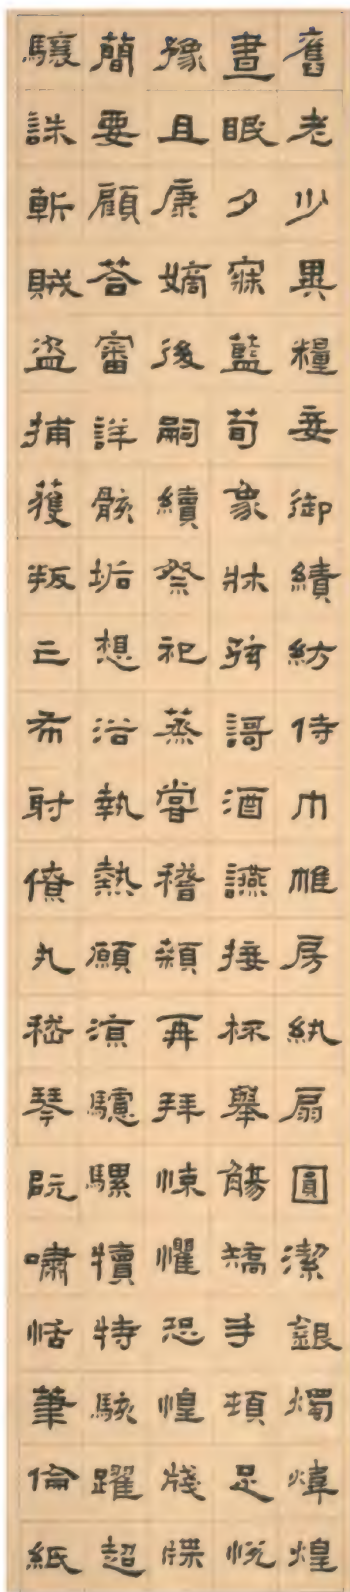 舊老少異糧妾御績紡侍巾帷房紈扇圓潔銀燭煒煌
晝眠夕寐藍荀象牀弦謌酒讌接杯舉觴矯手頓足悅
豫且康嫡後嗣續祭祀蒸嘗稽顙再拜悚懼恐惶牋牒
簡要顧荅審詳骸垢想浴執熱願涼驢騾犢特駭躍超
驤誅斬賊盜捕獲叛亡布射僚丸嵇琴阮嘯恬筆倫紙